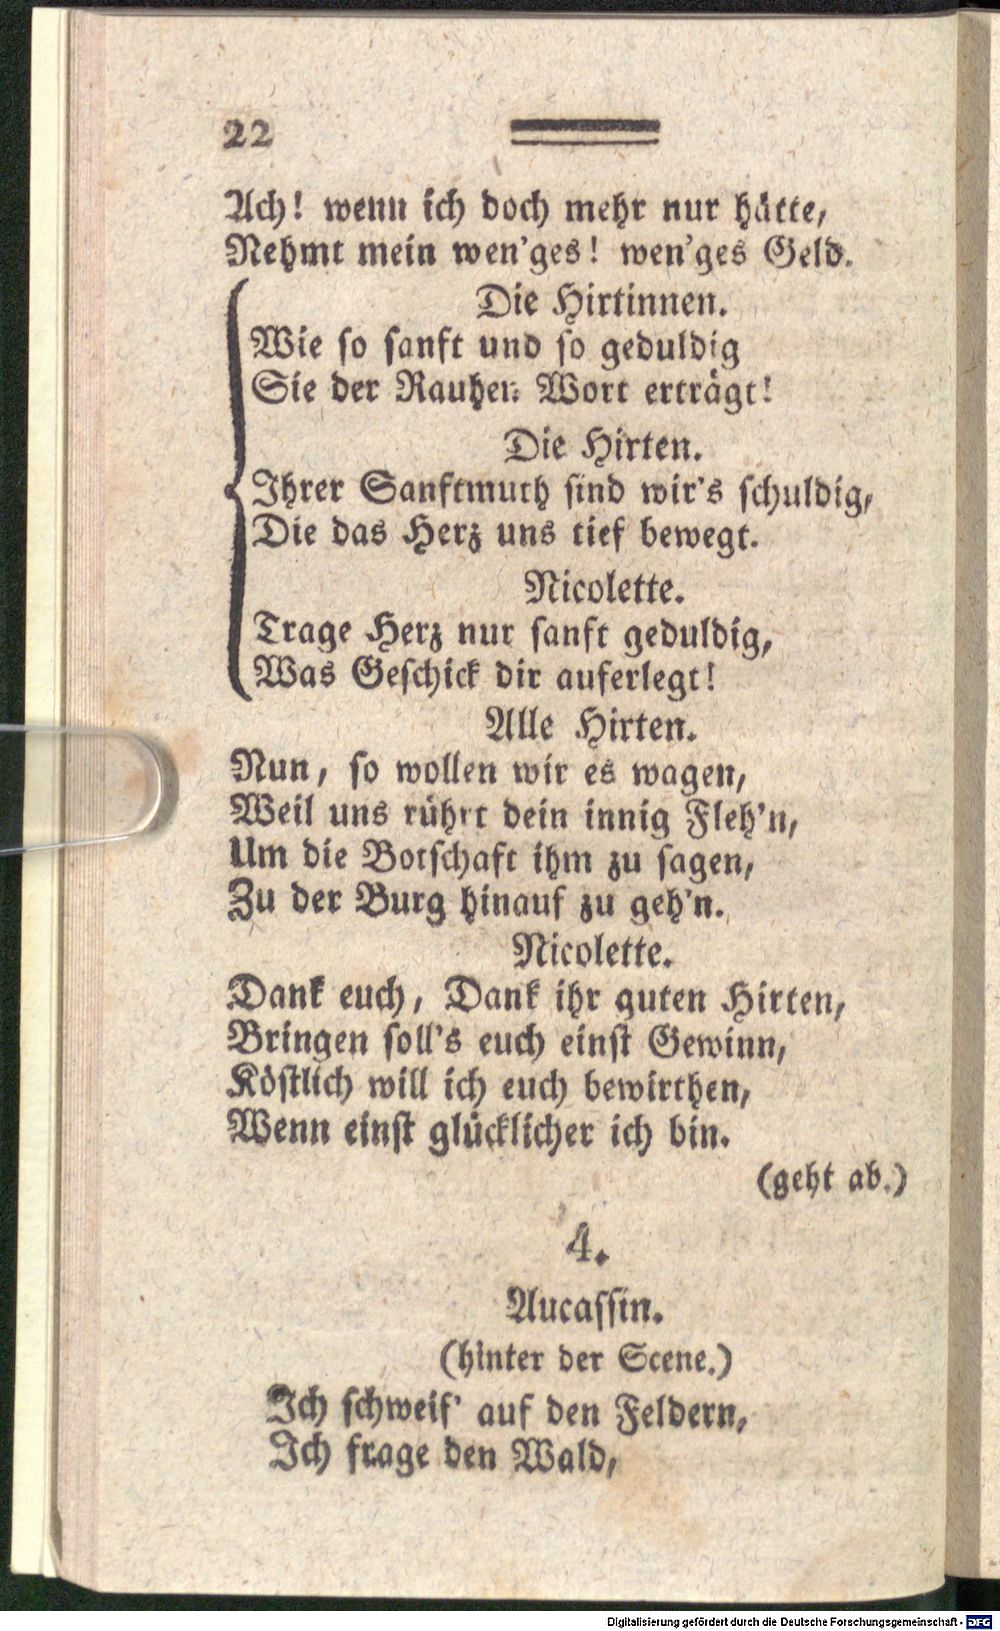 22
Ach! wenn ich doch mehr nur hätte,
Nehmt mein wen'ges! wen'ges Geld.
Die Hirtinnen.
Wie so sanft und so geduldig
Sie der Rauhen Wort erträgt!
Die Hirten.
Ihrer Sanftmuth sind wir's schuldig,
Die das Herz uns tief bewegt.
Nicolette.
Trage Herz nur sanft geduldig,
Was Geschick dir auferlegt!
Alle Hirten.
Nun, so wollen wir es wagen,
Weil uns rührt dein innig Fleh'n,
Um die Botschaft ihm zu sagen,
Zu der Burg hinauf zu geh'n.
Nicolette.
Dank euch, Dank ihr guten Hirten,
Bringen soll's euch einst Gewinn,
Köstlich will ich euch bewirthen,
Wenn einst glücklicher ich bin.
(geht ab.)
4.
Aucassin.
(hinter der Scene.)
Ich schweif' auf den Feldern,
Ich frage den Wald,
Digitalisierung gefördert durch die Deutsche Forschungsgemeinschaft - DFG